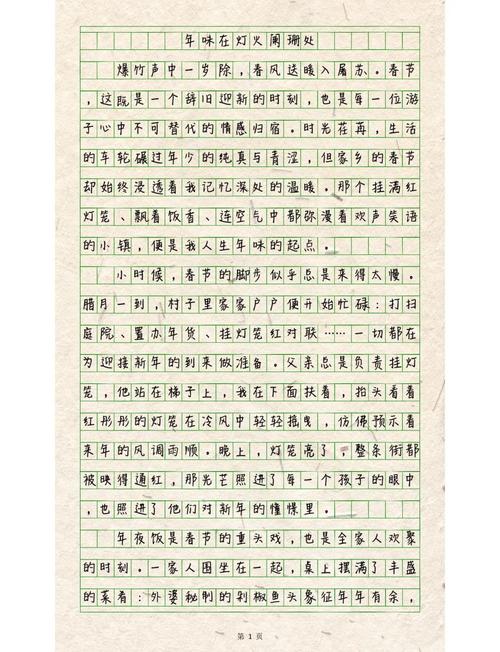 年味在灯火阑珊处
爆竹声中一岁除，春风送暖入屠苏。春节
，这既是一个辞旧迎新的时刻，也是每一位游
子心中不可替代的情感归宿。时光荏苒，生活
的车轮碾过年少的纯真与青涩，但家乡的春节
却始终浸透着我记忆深处的温暖。那个挂满红
灯笼、飘着饭香、连空气中都弥漫着欢声笑语
的小镇，便是我人生年味的起点。
小时候，春节的脚步似乎总是来得太慢。
腊月一到，村子里家家户户便开始忙碌：打扫
庭院、置办年货、挂灯笼红对联……一切都在
为迎接新年的到来做准备。父亲总是负责挂灯
笼，他站在梯子上，我在下面扶着，抬头看着
红彤彤的灯笼在冷风中轻轻摇曳，仿佛预示着
来年的风调雨顺。晚上，灯笼亮了，整条街都
被映得通红，那光芒照进了每一个孩子的眼中
，也照进了他们对新年的憧憬里。
年夜饭是春节的重头戏，也是全家人欢聚
的时刻。一家人围坐在一起，桌上摆满了丰盛
的菜肴：外婆秘制的剁椒鱼头象征年年有余，
第 1 页